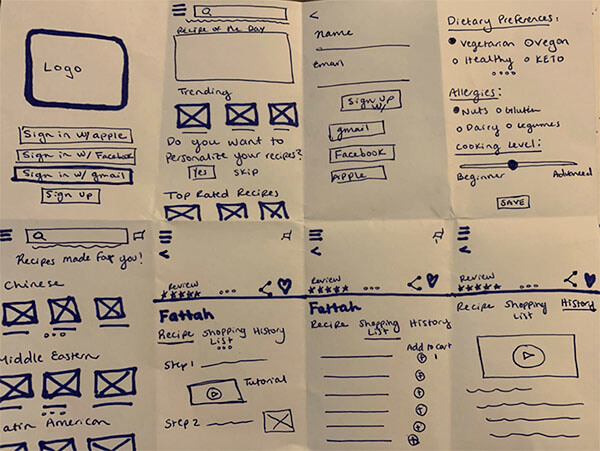 Logo
Sign in w/apple
Sign in w/ Facebook
Sign in w/ gmail
Sign up
Recipe of the Day
Trending
Do you want to
personalize your recipes?
Yes SKIP
Top Rated Recipes
Name
email
Sign up
w/
gmail
Facebook
Apple
Dietary Preferences:
Vegetarian Vegan
Healthy KETO
Allergies:
Nuts Gluten
Dairy Legumes
Cooking Level:
Beginner Advanced
SAVE
Recipes made for you!
Chinese
Middle Eastern
Latin American
Review
Fattah
Recipe Shopping History
List
Step 1
Tutorial
Step 2
Review
Fattah
Recipe Shopping History
List
Add to cart
1
Review
Recipe Shopping History
List